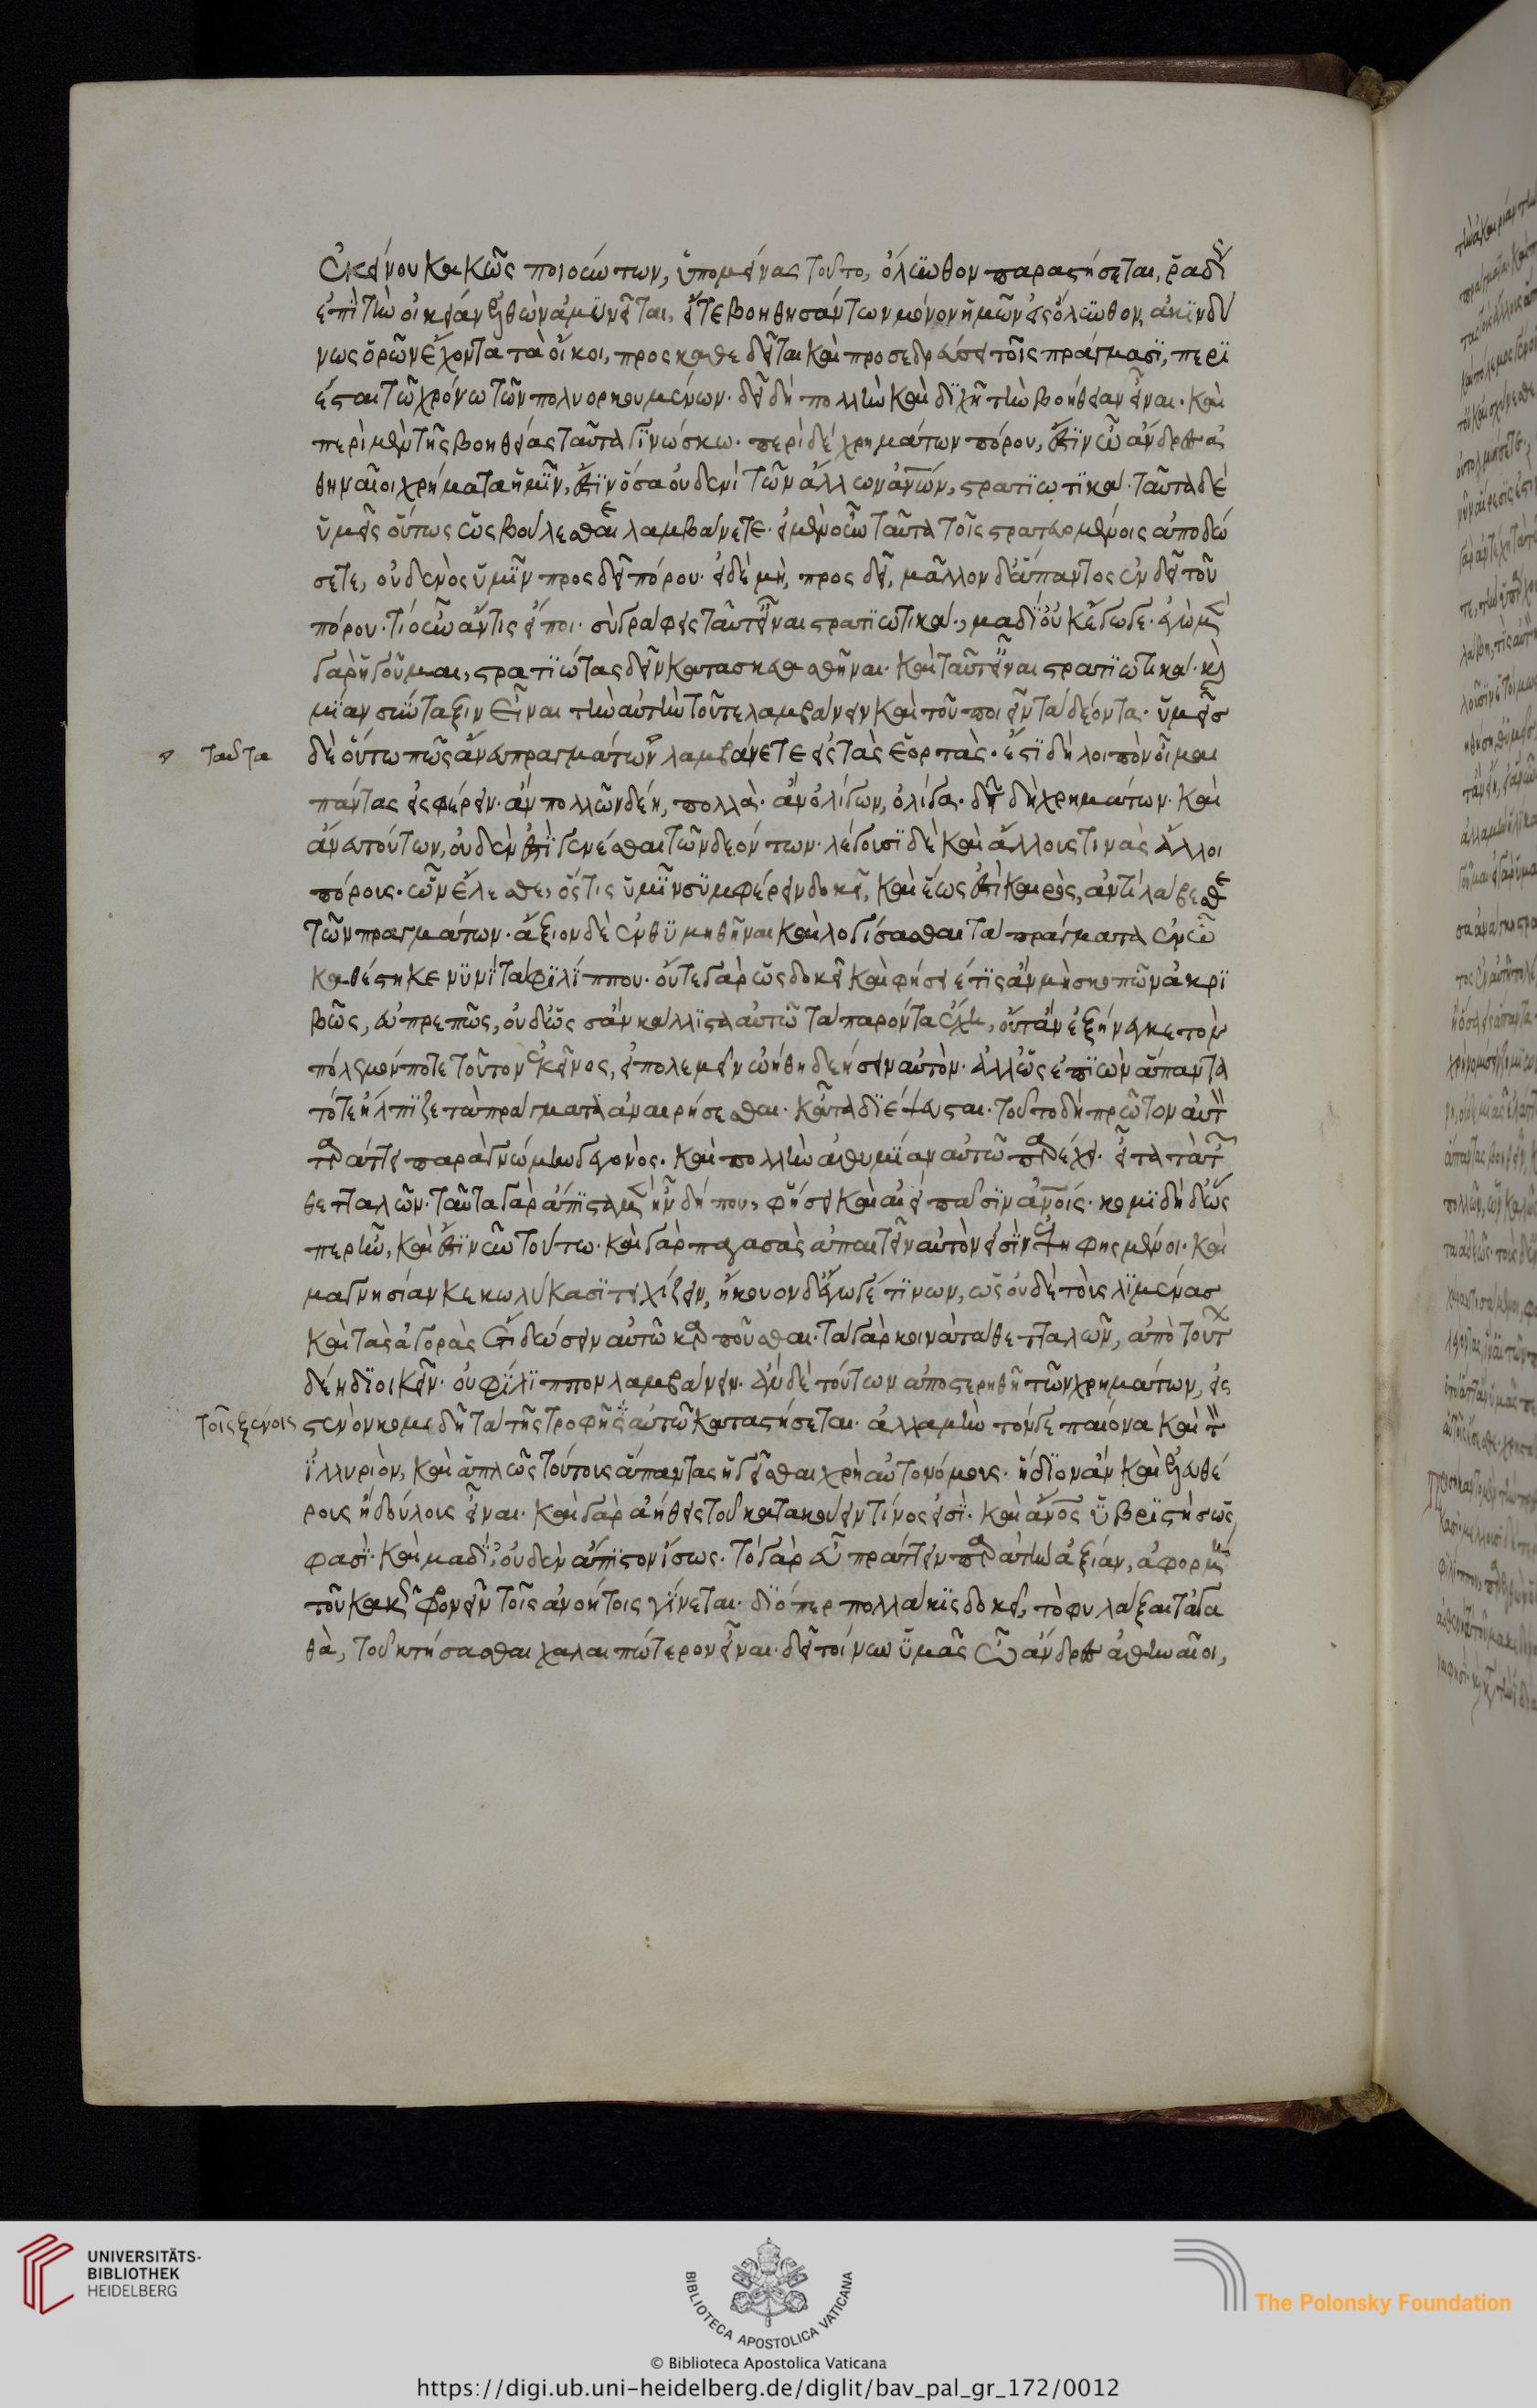 ἐκείνου κακῶς ποιούντων, ὑπομείνας τοῦτο, ὄλυνθον παραστήσεται, ῥαδί
ἐπὶ τὴν οἰκείαν ἐλθὼν ἀμυνεῖται, εἴτε βοηθησάντων μόνον ἡμῶν εἰς ὄλυνθον, ἀκινδύ
νως ὁρῶν ἔχοντα τὰ οἴκοι, προσκαθεδεῖται καὶ προσεδρεύσει τοῖς πράγμασι, περι
έσται τῶ χρόνω τῶν πολυορκουμένων. δεῖ δὴ πολλὴν καὶ διχῆ τὴν βοήθειαν εἶναι. καὶ
περὶ μὲν τῆς βοηθείας ταῦτα γινώσκω. περὶ δὲ χρημάτων πόρου, ἔστιν ὦ ἄνδρες ἀ
θηναῖοι χρήματα ἡμῖν, ἔστιν ὅσα οὐδενὶ τῶν ἄλλων ἀνων, στρατιωτικά. ταῦτα δὲ
ὑμεῖς οὕτως ὡς βούλεσθε λαμβάνετε. εἰ μὲν οὖν ταῦτα τοῖς στρατευομένοις ἀποδώ
σετε, οὐδενὸς ὑμῖν προσδεῖ πόρου. εἰ δὲ μὴ, προσδεῖ, μᾶλλον δ' ἅπαντος ἐνδεῖ τοῦ
πόρου. τί οὖν ἄν τις εἴποι. σὺ γράφεις ταῦτ' εἶναι στρατιωτικά., μὰ δί' οὐκ ἔγωγε. ἐγὼ μὲν
γὰρ ἡγοῦμαι, στρατιώτας δεῖν κατασκευασθῆναι. καὶ ταῦτ' εἶναι στρατιωτικά. καὶ
μίαν σύνταξιν εἶναι τὴν αὐτὴν τοῦ τε λαμβάνειν καὶ τοῦ ποιεῖν τὰ δέοντα. ὑμεῖσ
ταῦτα δὲ οὕτω πῶς ἄνευ πραγμάτων λαμβάνετε εἰς τὰς ἑορτάς. ἔστι δὴ λοιπὸν οἶμαι
πάντας εἰσφέρειν. ἂν πολλῶν δέη, πολλὰ. ἂν ὀλίγων, ὀλίγα. δεῖ δὴ χρημάτων. καὶ
ἄνευ τούτων, οὐδὲν ἔστι γενέσθαι τῶν δεόντων. λέγουσι δὲ καὶ ἄλλους τινὰς ἄλλοι
πόρους. ὧν ἕλεσθε, ὅστις ὑμῖν συμφέρειν δοκεῖ, καὶ ἕως ἔστι καιρὸς, ἀντιλάβεσθε
τῶν πραγμάτων. ἄξιον δὲ ἐνθυμηθῆναι καὶ λογίσασθαι τὰ πράγματα ἐν ᾧ
καθέστηκε νυνὶ τὰ φιλίππου. οὔτε γὰρ ὡς δοκεῖ καὶ φήσειέ τις ἂν μὴ σκοπῶν ἀκρι
βῶς, εὐπρεπῶς, οὐδ' ὡς ἂν κάλλιστα αὐτῶ τὰ παρόντα ἔχει, οὔτ' ἂν ἐξήνεγκε τὸν
πόλεμόν ποτε τοῦτον ἐκεῖνος, εἰ πολεμεῖν ᾠήθη δεήσειν αὐτὸν. ἀλλ' ὡς ἐπιὼν ἅπαντα
τότε ἤλπιζε τὰ πράγματα ἀναιρήσεσθαι. κᾆτα διέψευσται. τοῦτο δὴ πρῶτον αὐτὸν
ταράττει παρὰ γνώμην γεγονὸς. καὶ πολλὴν ἀθυμίαν αὐτῶ παρέχει. εἶτα τὰ τῶν
θετταλῶν. ταῦτα γὰρ ἄπιστα μὲν ἦν δήπου, φύσει καὶ ἀεὶ πᾶσιν ἀνοις. κομιδῆ δ' ὥς
περ ἦν, καὶ ἔστιν νῦν τούτω. καὶ γὰρ παγασὰς ἀπαιτεῖν αὐτὸν εἰσὶν ἐψηφισμένοι. καὶ
μαγνησίαν κεκωλύκασι τειχίζειν, ἤκουον δ' ἔγωγέ τινων, ὡς οὐδὲ τοὺς λιμένασ
καὶ τὰς ἀγορὰς ἔτι δώσειν αὐτῶ καρποῦσθαι. τὰ γὰρ κοινὰ τὰ θετταλῶν, ἀπὸ τούτων
δέη διοικεῖν. οὐ φίλιππον λαμβάνειν. εἰ δὲ τούτων ἀποστερηθῆ τῶν χρημάτων, εἰς
τοῖς ξένοις στενὸν κομιδῆ τὰ τῆς τροφῆς αὐτῶ καταστήσεται. ἀλλὰ μὴν τόν γε παίονα καὶ τὸν
ἰλλυριὸν, καὶ ἁπλῶς τούτους ἅπαντας ἡγεῖσθαι χρὴ αὐτονόμους. ἥδιον ἂν καὶ ἐλευθέ
ρους ἢ δούλους εἶναι. καὶ γὰρ ἀήθεις τοῦ κατακούειν τινός εἰσι. καὶ ἄνος ὑβριστὴς ὥς
φασι. καὶ μὰ δί', οὐδὲν ἄπιστον ἴσως. τὸ γὰρ εὖ πράττειν παρὰ τὴν ἀξίαν, ἀφορμὴ
τοῦ κακῶς φρονεῖν τοῖς ἀνοήτοις γίνεται. διόπερ πολλάκις δοκεῖ, τὸ φυλάξαι τἀγα
θὰ, τοῦ κτήσασθαι χαλαιπώτερον εἶναι. δεῖ τοίνυν ὑμᾶς ὦ ἄνδρες ἀθηναῖοι,
UNIVERSITÄTS-
BIBLIOTHEK
HEIDELBERG
BIBLIOTECA APOSTOLICA VATICANA
The Polonsky Foundation
© Biblioteca Apostolica Vaticana
https://digi.ub.uni-heidelberg.de/diglit/bav_pal_gr_172/0012